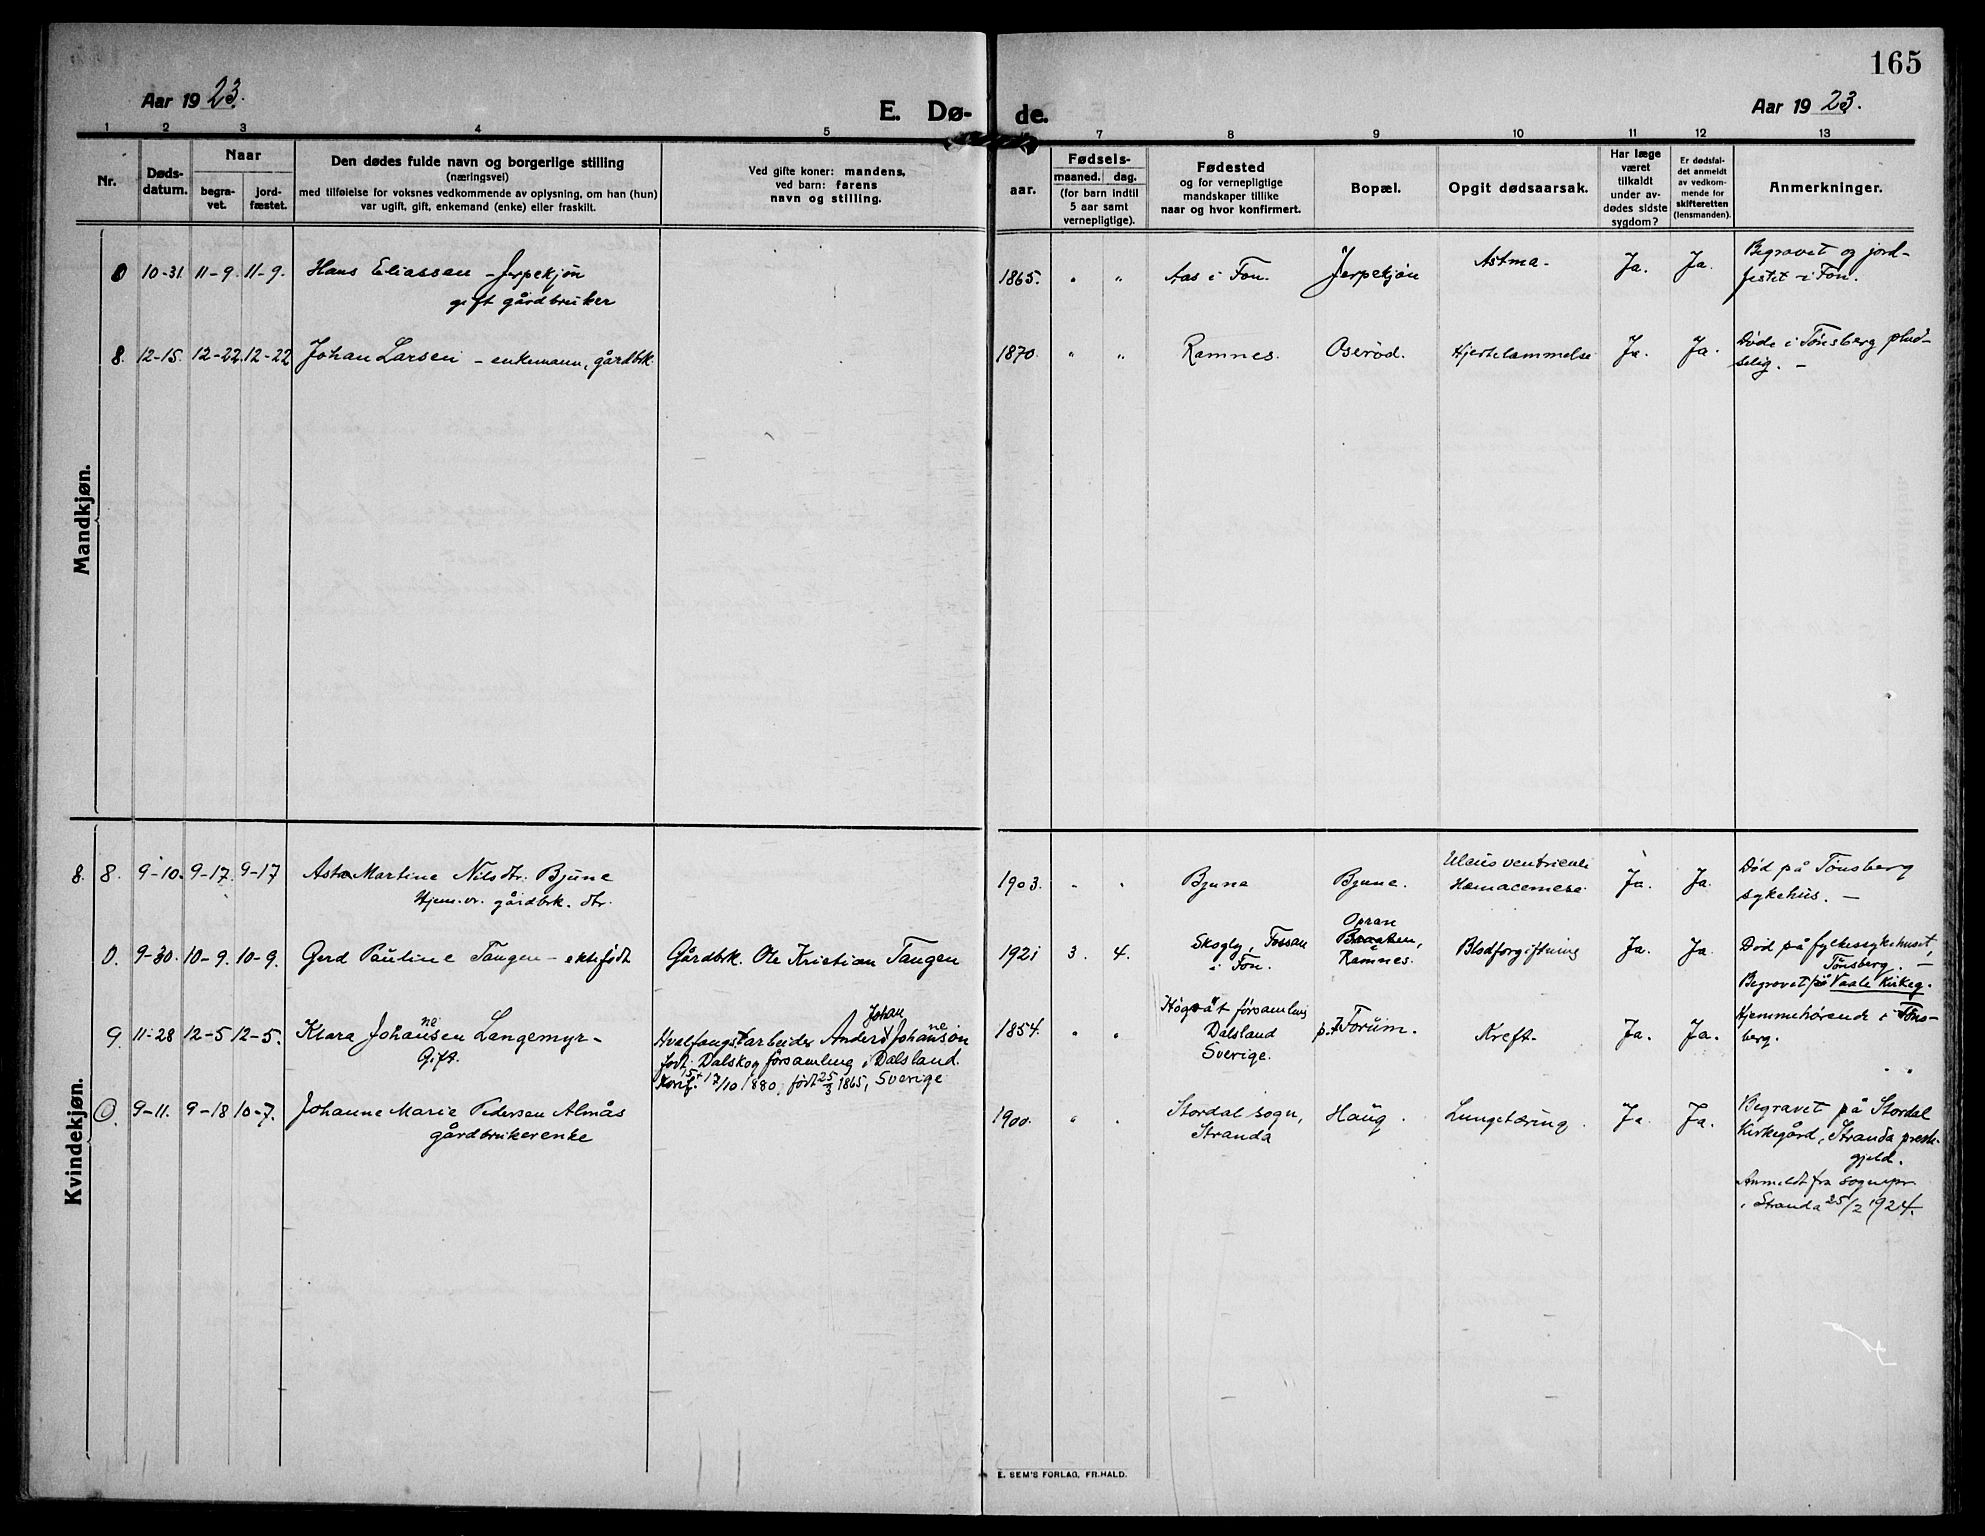 165
Aar 1923.
E. Dø-
de.
Aar 1923.
1 2 3 4 5 7 8 9 10 11 12 13
Nr.
Døds-
datum.
Naar
begra-
vet.
jord-
fæstet.
Den dødes fulde navn og borgerlige stilling
(næringsvei)
med tilføielse for voksnes vedkommende av oplysning, om han (hun)
var ugift, gift, enkemand (enke) eller fraskilt.
Ved gifte koner: mandens,
ved barn: farens
navn og stilling.
aar.
Fødsels-
maaned. dag.
(for barn indtil
5 aar samt
vernepligtige).
Fødested
og for vernepligtige
mandskaper tillike
naar og hvor konfirmert.
Bopæl.
Opgit dødsaarsak.
Har læge
været
tilkaldt
under av-
dødes sidste
sygdom?
Er dødsfal-
det anmeldt
av vedkom-
mende for
skifteretten
(lensmanden).
Anmerkninger.
Mandkjøn.
0 10-31. 11-9. 11-9. Hans Eliassen - Jerpekjøn
gift gårdbruker
1865. " " Aas i Fon. Jerpekjøn Astma - Ja. Ja. Begravet og jord-
festet i Fon.
8. 12-15. 12-22. 12-22 Johan Larsen - enkemann, gårdbrk.
1870. " " Ramnes. Oserød. Hjertelammelse Ja. Ja. Døde i Tønsberg plud-
selig. -
Kvindekjøn.
8. 8. 9-10. 9-17. 9-17 Asta Martine Nilsdtr. Bjune
Hjem.v. gårdbrk. dtr.
1903. " " Bjune Bjune. Ulcus ventriculi
Hæmacemese. Ja. Ja. Død på Tønsberg
sykehus. -
0. 9-30. 10-9. 10-9. Gerd Pauline Tangen - ektefødt Gårdbrk. Ole Kristian Tangen
1921 3. 4. Skogly, Fossan
i Fon. Opran
Braaten,
Ramnes. Blodforgiftning Ja. Ja. Død på fylkessykehuset,
Tønsberg. -
Begravet på Vaale Kirkeg.
9. 11-28 12-5 12-5. Klara Johansen Langemyr -
ne
Gift.
Johan
Hvalfangstarbeider Anders Johanson
ne
født: Dalskog församling i Dalsland.
Konf. 17/10 1880, født 25/3 1865, Sverige
1854. " " församling
Dalsland
Sverige. p.t. Forum. Kreft. Ja. Ja. Hjemmehørende i Tøns-
berg.
0. 9-11. 9-18 10-7. Johanne Marie Pedersen Almås
gårdbrukerenke
1900. " " Stordal sogn,
Stranda Haug. Lungetæring. Ja. Ja. Begravet på Stordal
Kirkegård, Stranda preste-
gjeld.
Anmeldt fra sognepr.
i Stranda 25/2 1924.
E. SEM'S FORLAG, FR.HALD.